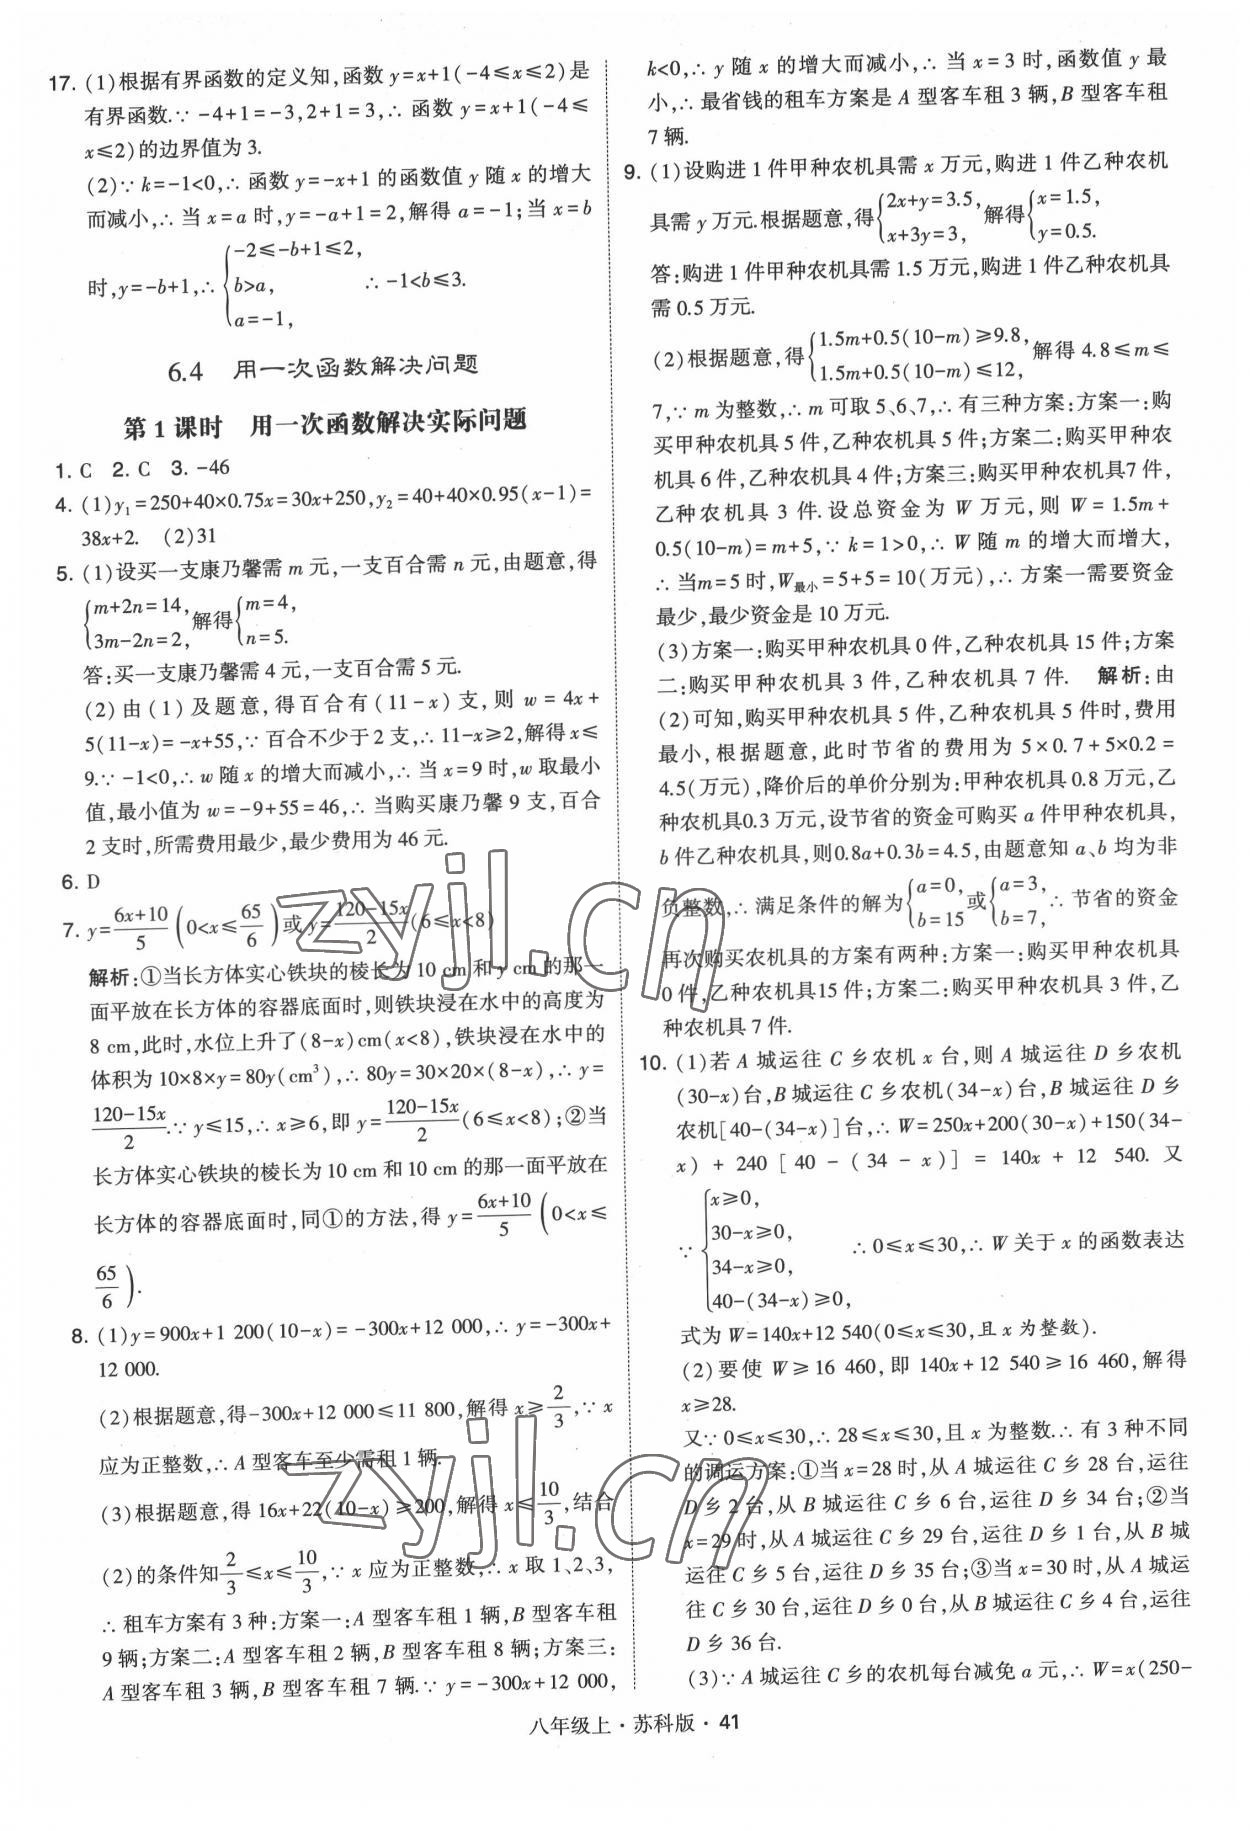 17. (1)根据有界函数的定义知,函数 y=x+1(-4≤x≤2)是
有界函数.∵ -4+1=-3,2+1=3,∴ 函数 y=x+1(-4≤
x≤2)的边界值为 3.
(2)∵ k=-1<0,∴ 函数 y=-x+1 的函数值 y 随 x 的增大
而减小,∴ 当 x=a 时,y=-a+1=2,解得 a=-1;当 x=b
时,y=-b+1,∴ {-2≤-b+1≤2, b>a, a=-1, ∴ -1<b≤3.
6.4 用一次函数解决问题
第 1 课时 用一次函数解决实际问题
1. C 2. C 3. -46
4. (1)y₁=250+40×0.75x=30x+250,y₂=40+40×0.95(x-1)=
38x+2. (2)31
5. (1)设买一支康乃馨需 m 元,一支百合需 n 元,由题意,得
{m+2n=14, 3m-2n=2, 解得{m=4, n=5.
答:买一支康乃馨需 4 元,一支百合需 5 元.
(2)由(1)及题意,得百合有(11-x)支,则 w=4x+
5(11-x)=-x+55,∵ 百合不少于 2 支,∴ 11-x≥2,解得 x≤
9.∵ -1<0,∴ w 随 x 的增大而减小,∴ 当 x=9 时,w 取最小
值,最小值为 w=-9+55=46,∴ 当购买康乃馨 9 支,百合
2 支时,所需费用最少,最少费用为 46 元.
6. D
7. y=(6x+10)/5 (0<x≤65/6)或 y=(120-15x)/2(6≤x<8)
解析:①当长方体实心铁块的棱长为 10 cm 和 y cm 的那一
面平放在长方体的容器底面时,则铁块浸在水中的高度为
8 cm,此时,水位上升了(8-x)cm(x<8),铁块浸在水中的
体积为 10×8×y=80y(cm³),∴ 80y=30×20×(8-x),∴ y=
(120-15x)/2.∵ y≤15,∴ x≥6,即 y=(120-15x)/2(6≤x<8);②当
长方体实心铁块的棱长为 10 cm 和 10 cm 的那一面平放在
长方体的容器底面时,同①的方法,得 y=(6x+10)/5 (0<x≤
65/6).
8. (1)y=900x+1 200(10-x)=-300x+12 000,∴ y=-300x+
12 000.
(2)根据题意,得-300x+12 000≤11 800,解得 x≥2/3,∵ x
应为正整数,∴ A 型客车至少需租 1 辆.
(3)根据题意,得 16x+22(10-x)≥200,解得 x≤10/3,结合
(2)的条件知2/3≤x≤10/3,∵ x 应为正整数,∴ x 取 1、2、3,
∴ 租车方案有 3 种:方案一:A 型客车租 1 辆,B 型客车租
9 辆;方案二:A 型客车租 2 辆,B 型客车租 8 辆;方案三:
A 型客车租 3 辆,B 型客车租 7 辆.∵ y=-300x+12 000,
k<0,∴ y 随 x 的增大而减小,∴ 当 x=3 时,函数值 y 最
小,∴ 最省钱的租车方案是 A 型客车租 3 辆,B 型客车租
7 辆.
9. (1)设购进 1 件甲种农机具需 x 万元,购进 1 件乙种农机
具需 y 万元.根据题意,得{2x+y=3.5, x+3y=3, 解得{x=1.5, y=0.5.
答:购进 1 件甲种农机具需 1.5 万元,购进 1 件乙种农机具
需 0.5 万元.
(2)根据题意,得{1.5m+0.5(10-m)≥9.8, 1.5m+0.5(10-m)≤12, 解得 4.8≤m≤
7,∵ m 为整数,∴ m 可取 5、6、7,∴ 有三种方案:方案一:购
买甲种农机具 5 件,乙种农机具 5 件;方案二:购买甲种农
机具 6 件,乙种农机具 4 件;方案三:购买甲种农机具7 件,
乙种农机具 3 件.设总资金为 W 万元,则 W=1.5m+
0.5(10-m)=m+5,∵ k=1>0,∴ W 随 m 的增大而增大,
∴ 当m=5 时,W最小=5+5=10(万元),∴ 方案一需要资金
最少,最少资金是 10 万元.
(3)方案一:购买甲种农机具 0 件,乙种农机具 15 件;方案
二:购买甲种农机具 3 件,乙种农机具 7 件. 解析:由
(2)可知,购买甲种农机具 5 件,乙种农机具 5 件时,费用
最小,根据题意,此时节省的费用为 5×0.7+5×0.2=
4.5(万元),降价后的单价分别为:甲种农机具 0.8 万元,乙
种农机具0.3 万元,设节省的资金可购买 a 件甲种农机具,
b 件乙种农机具,则0.8a+0.3b=4.5,由题意知 a、b 均为非
负整数,∴ 满足条件的解为{a=0, b=15 或{a=3, b=7, ∴ 节省的资金
再次购买农机具的方案有两种:方案一:购买甲种农机具
0 件,乙种农机具15 件;方案二:购买甲种农机具 3 件,乙
种农机具 7 件.
10. (1)若 A 城运往 C 乡农机 x 台,则 A 城运往 D 乡农机
(30-x)台,B 城运往 C 乡农机(34-x)台,B 城运往 D 乡
农机[40-(34-x)]台,∴ W=250x+200(30-x)+150(34-
x)+240[40-(34-x)]=140x+12 540. 又
∵ {x≥0, 30-x≥0, 34-x≥0, 40-(34-x)≥0, ∴ 0≤x≤30,∴ W 关于 x 的函数表达
式为 W=140x+12 540(0≤x≤30,且 x 为整数).
(2)要使 W≥16 460,即 140x+12 540≥16 460,解得
x≥28.
又∵ 0≤x≤30,∴ 28≤x≤30,且 x 为整数.∴ 有 3 种不同
的调运方案:①当 x=28 时,从 A 城运往 C 乡 28 台,运往
D 乡 2 台,从 B 城运往 C 乡 6 台,运往 D 乡 34 台;②当
x=29 时,从 A 城运往 C 乡 29 台,运往 D 乡 1 台,从 B 城
运往 C 乡 5 台,运往 D 乡 35 台;③当 x=30 时,从 A 城运
往 C 乡 30 台,运往 D 乡 0 台,从 B 城运往 C 乡 4 台,运往
D 乡 36 台.
(3)∵ A 城运往 C 乡的农机每台减免 a 元,∴ W=x(250-
八年级上·苏科版·41
zyjl.cn
zyjl.cn